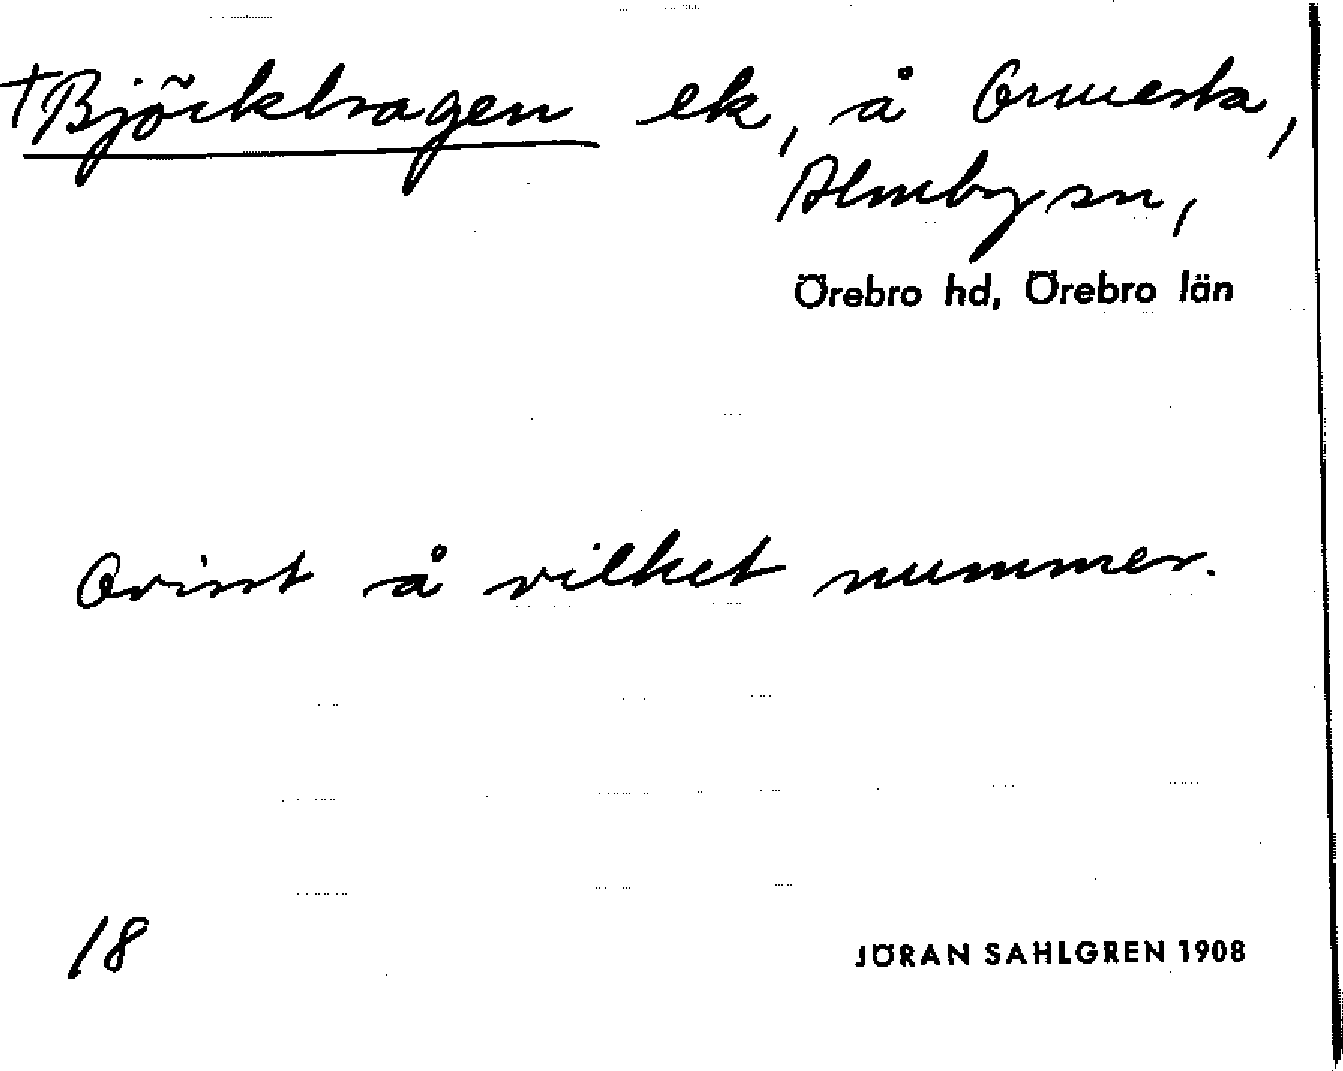 †Björkhagen ek, å Ormesta,
Almby sn,
Örebro hd, Örebro län
Ovisst å vilket nummer.
18
JÖRAN SAHLGREN 1908